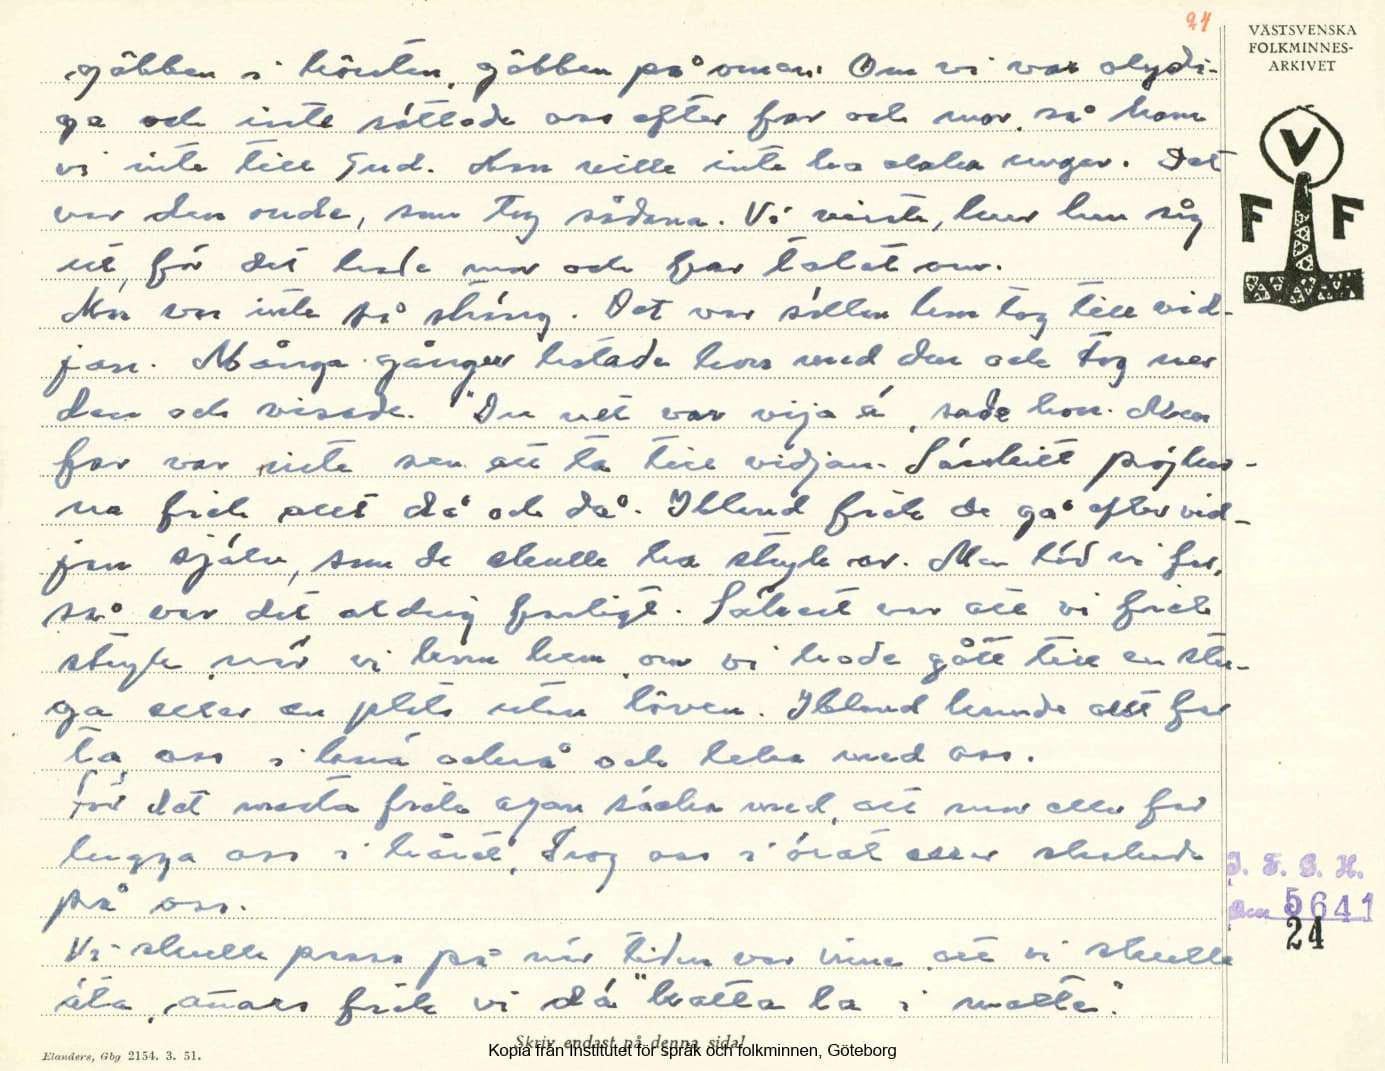 24
VÄSTSVENSKA
FOLKMINNES-
ARKIVET
V
F F
gåbben i hörsten, gåbben på onan. Om vi var olydi-
ga och inte rättade oss efter far och mor, så kom
vi inte till Gud. Han ville inte ha elaka ungar. Det
var den onde, som tog sådana. Vi visste, hur hen såg
ut, för det hade mor och far talat om.
Mor var inte så sträng. Det var sällan hon tog till vid-
jan. Många gånger hotade hon med den och tog ner
den och visade. "Du vet var vija ä, sade hon. Men
far var inte sen att ta till vidjan. Särskilt pojkar-
na fick allt då och då. Ibland fick de gå efter vid-
jan själv, som de skulle ha stryk av. Men löd vi far,
så var det aldrig farligt. Säkert var att vi fick
stryk, när vi kom hem, om vi hade gått till en stu-
ga eller en plats utan löven. Ibland kunde allt far
ta oss i knä också och leka med oss.
För det mesta fick agan räcka med, att mor eller far
lugga oss i håret, drog oss i örat eller skakade
på oss.
Vi skulle passa på när tiden var inne, att vi skulle
äta, annars fick vi då "katta la i matte".
J. F. G. H.
Acc 5641
24
Skriv endast på denna sida!
Elanders, Gbg 2154. 3. 51.
Kopia från Institutet för språk och folkminnen, Göteborg